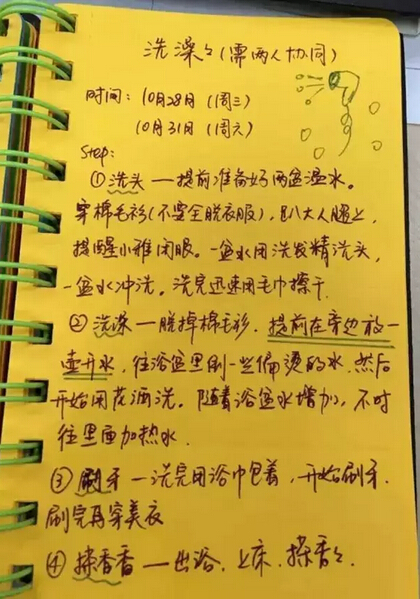 洗澡々(需两人协同)
时间：10月28日（周三）
10月31日（周六）
Step:
①洗头 — 提前准备好两盆温水。
穿棉毛衫(不要全脱衣服)，趴大人腿上，
提醒小雅闭眼。一盆水用洗发精洗头，
一盆水冲洗。洗完迅速用毛巾擦干.
②洗澡 — 脱掉棉毛衫．提前在旁边放一
壶开水，往浴盆里倒一些偏烫的水．然后
开始用花洒洗。随着浴盆水增加，不时
往里面加热水．
③刷牙 — 洗完用浴巾包着，开始刷牙．
刷完再穿美衣
④擦香香 — 出浴．上床．擦香々．